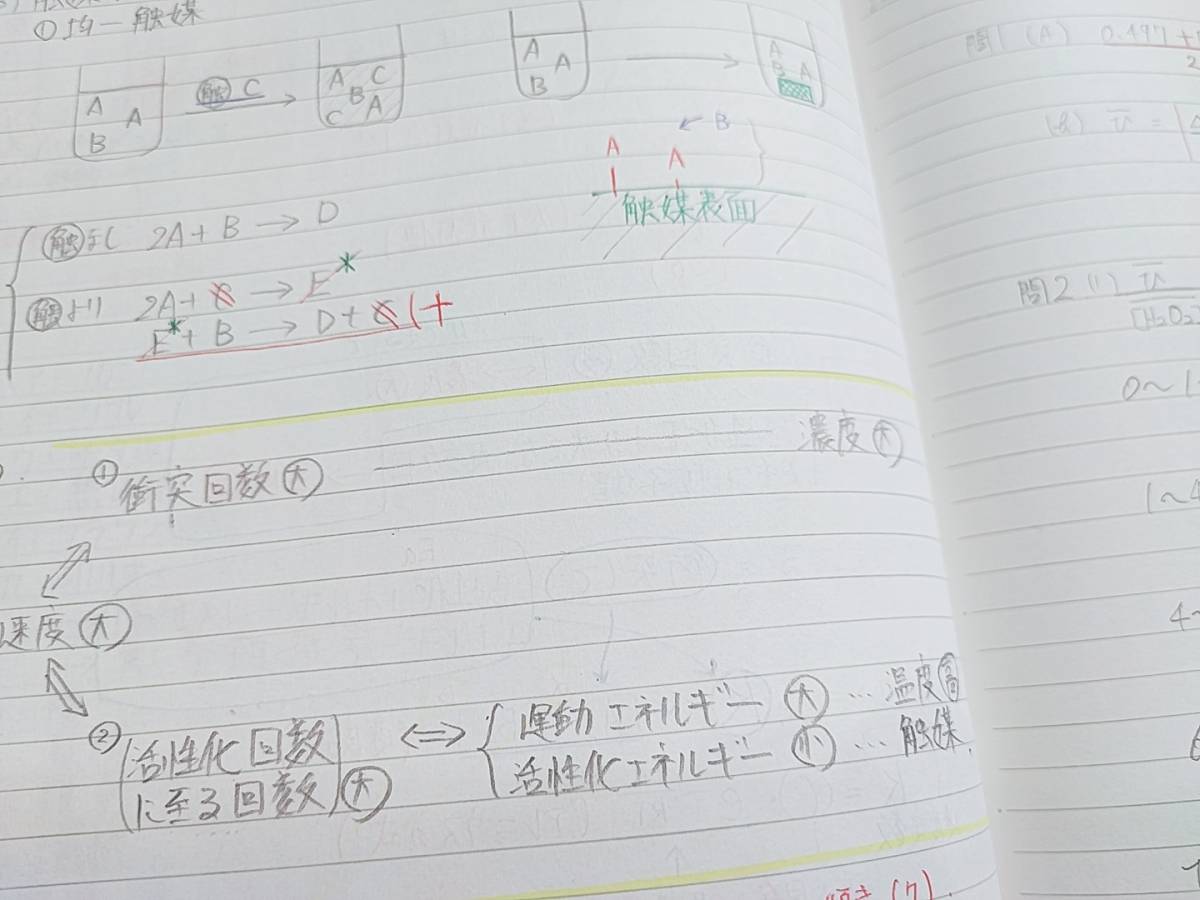 ① 均一触媒
A A B
触 C
A C B C A
A A B
A B A
A A ← B
触媒表面
触なし 2A + B → D
触あり 2A + C → E*
E* + B → D + C (+
① 衝突回数 大 濃度 大
速度 大
② 活性化回数 ⇔ 運動エネルギー 大 … 温度 高
に至る回数 大 活性化エネルギー 小 … 触媒
問1 (A) 0.497 +
2
v =
問2 (1) v
[H₂O₂]
0〜1
1〜4
4